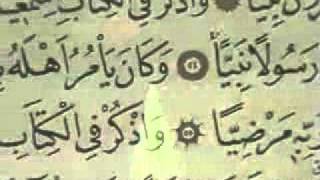 نَبِيًّا ۝ وَاذْكُرْ فِي الْكِتَابِ
رَسُولًا نَبِيًّا ۝٥٤ وَكَانَ يَأْمُرُ أَهْلَهُ
رَبِّهِ مَرْضِيًّا ۝٥٥ وَاذْكُرْ فِي الْكِتَابِ